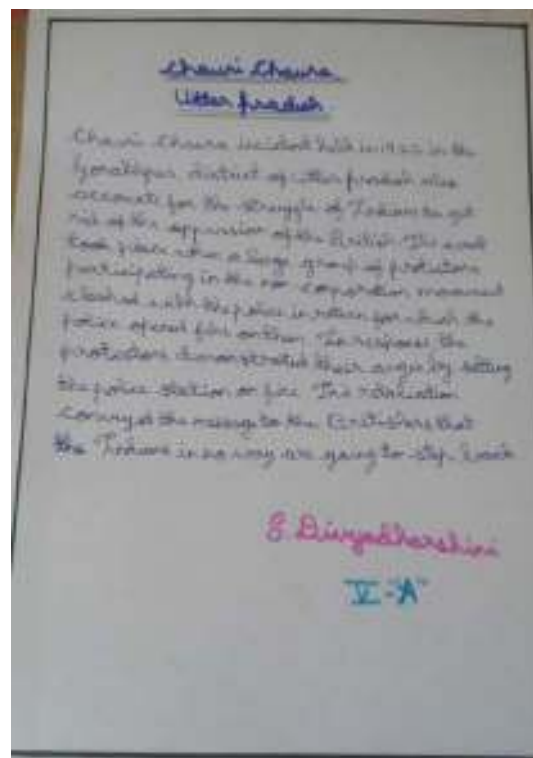 Chauri Chaura
Utter pradesh
Chauri Chaura incident held in 1922 in the
Gorakhpur district of utter pradesh also
accounts for the struggle of Indians to get
rid of the oppression of the British. The event
took place when a large group of protestors
participating in the non cooperation movement
clashed with the police in return for which the
police opened fire on them. In response the
protestors demonstrated their anger by setting
the police station on fire. The retaliation
conveyed the message to the Britishers that
the Indians in no way are going to step back
S. Divyadharshini
V-"A"